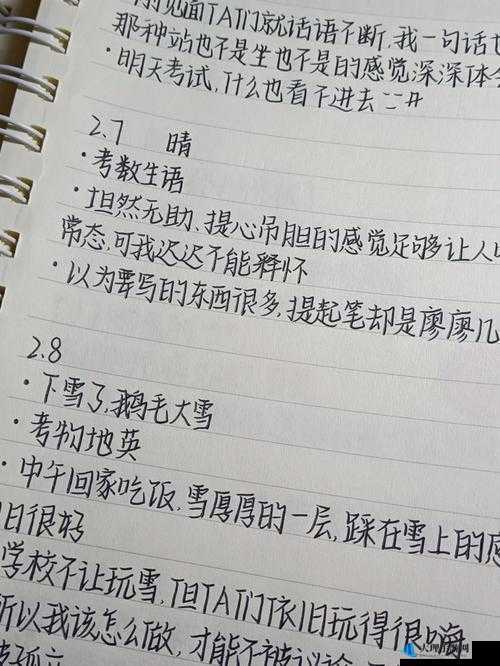 见面TAT们就话语不断,我一句话也
那种站也不是坐也不是的感觉深深体会
·明天考试,什么也看不进去
2.7 晴
·考数生语
·坦然无助、提心吊胆的感觉足够让人
常态,可我迟迟不能释怀
·以为要写的东西很多,提起笔却是廖廖几
2.8
·下雪了,鹅毛大雪
·考物地英
·中午回家吃饭,雪厚厚的一层,踩在雪上的感
旧很好
学校不让玩雪,但TAT们依旧玩得很嗨
所以我该怎么做,才能不被议论
孤立